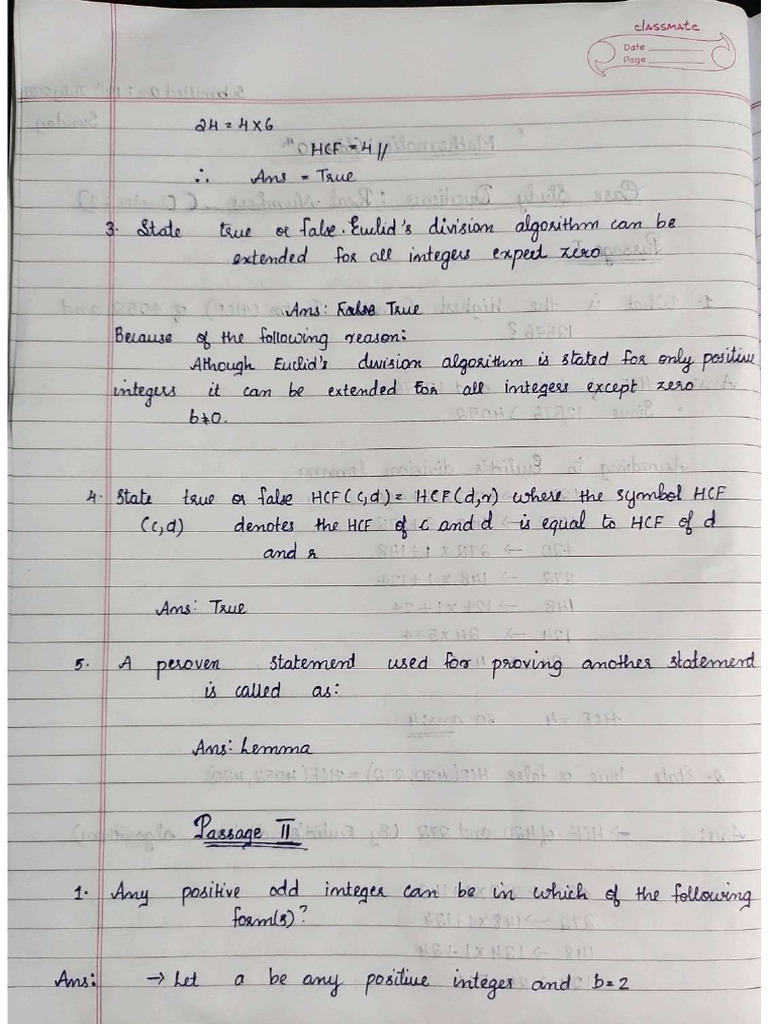 classmate
Date
Page
24 = 4×6
HCF = 4 //
∴ Ans = True
3. State true or false. Euclid's division algorithm can be
extended for all integers expect zero
Ans: False True
Because of the following reason:
Athough Euclid's division algorithm is stated for only positive
integers it can be extended for all integers except zero
b≠0.
4. State true or false HCF(c,d) = HCF(d,r) where the symbol HCF
(c,d) denotes the HCF of c and d is equal to HCF of d
and r
Ans: True
5. A peroven statement used for proving another statement
is called as:
Ans: Lemma
Passage II
1. Any positive odd integer can be in which of the following
form(s)?
Ans: → Let a be any positive integer and b=2